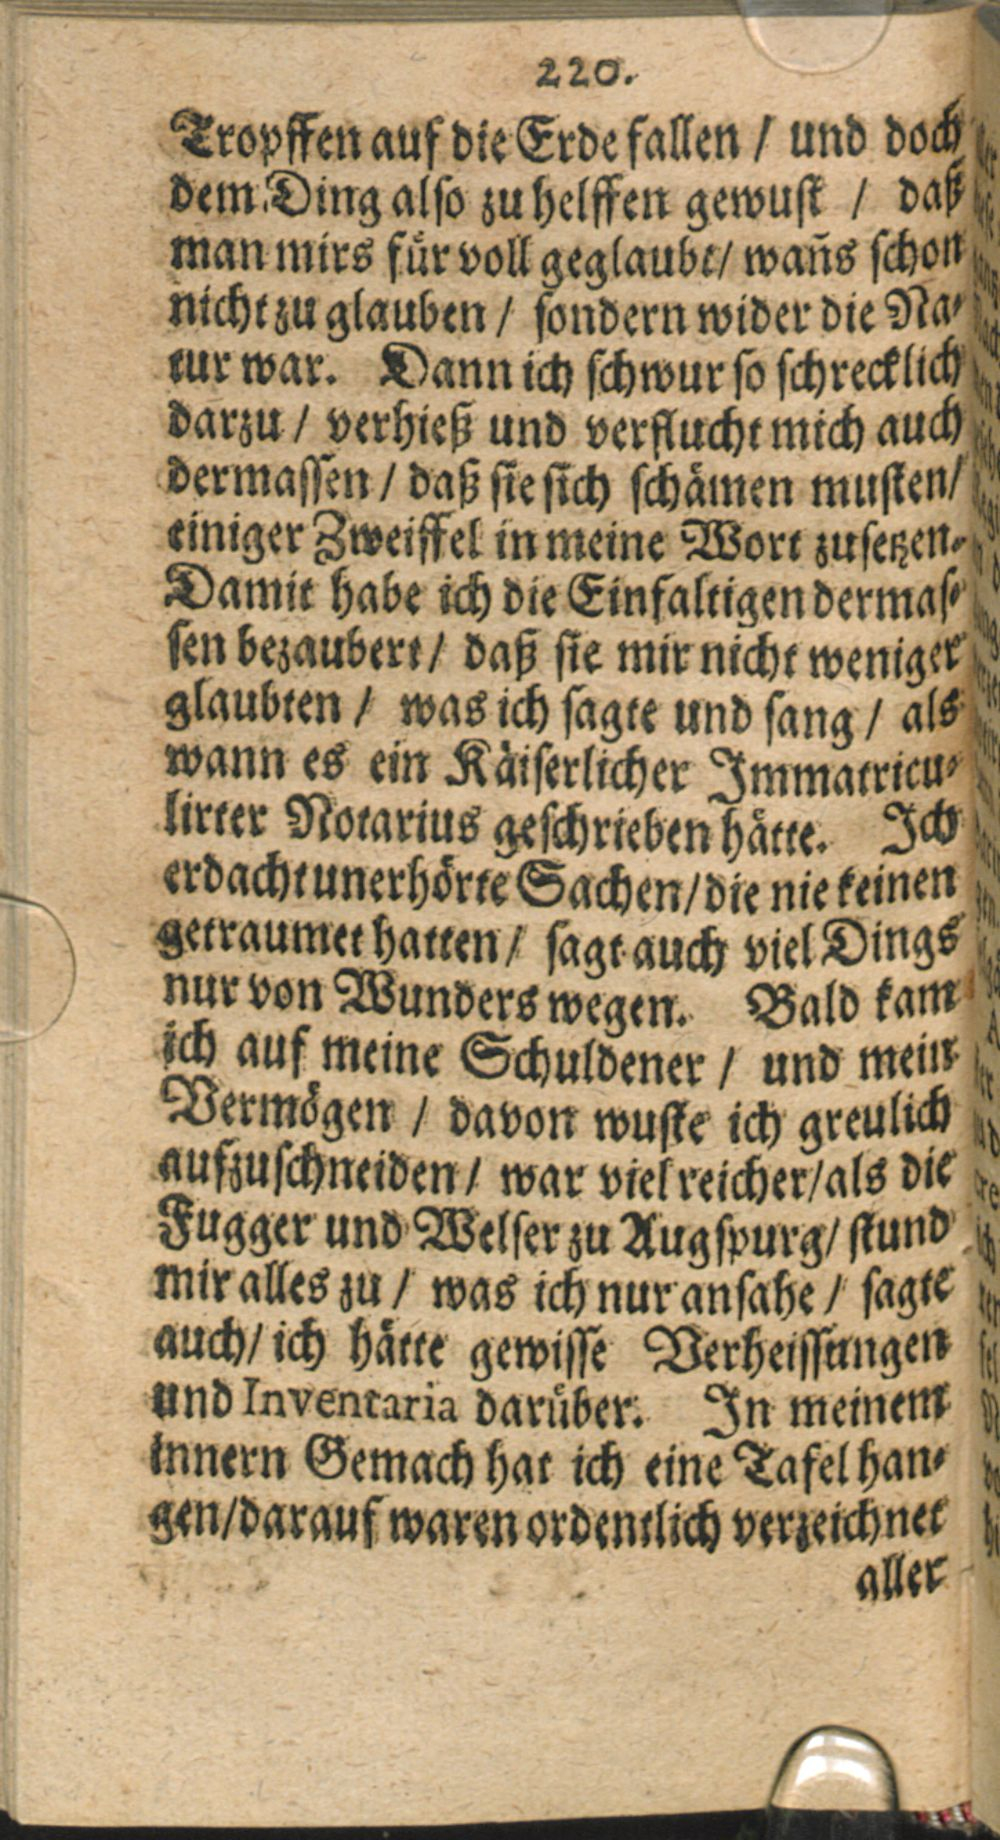 220.
Tropffen auf die Erde fallen / und doch
dem Ding also zu helffen gewust / daß
man mirs für voll geglaubt/ wañs schon
nicht zu glauben / sondern wider die Na-
tur war. Dann ich schwur so schrecklich
darzu / verhieß und verflucht mich auch
dermassen / daß sie sich schämen musten/
einiger Zweiffel in meine Wort zusetzen.
Damit habe ich die Einfaltigen dermas-
sen bezaubert / daß sie mir nicht weniger
glaubten / was ich sagte und sang / als
wann es ein Käiserlicher Immatricu-
lirter Notarius geschrieben hätte. Ich
erdacht unerhörte Sachen/die nie keinen
getraumet hatten / sagt auch viel Dings
nur von Wunders wegen. Bald kam
ich auf meine Schuldener / und mein
Vermögen / davon wuste ich greulich
aufzuschneiden / war viel reicher/als die
Fugger und Welser zu Augspurg/ stund
mir alles zu / was ich nur ansahe / sagte
auch/ ich hätte gewisse Verheissungen
und Inventaria darüber. In meinem
innern Gemach hat ich eine Tafel han-
gen/darauf waren ordentlich verzeichnet
aller